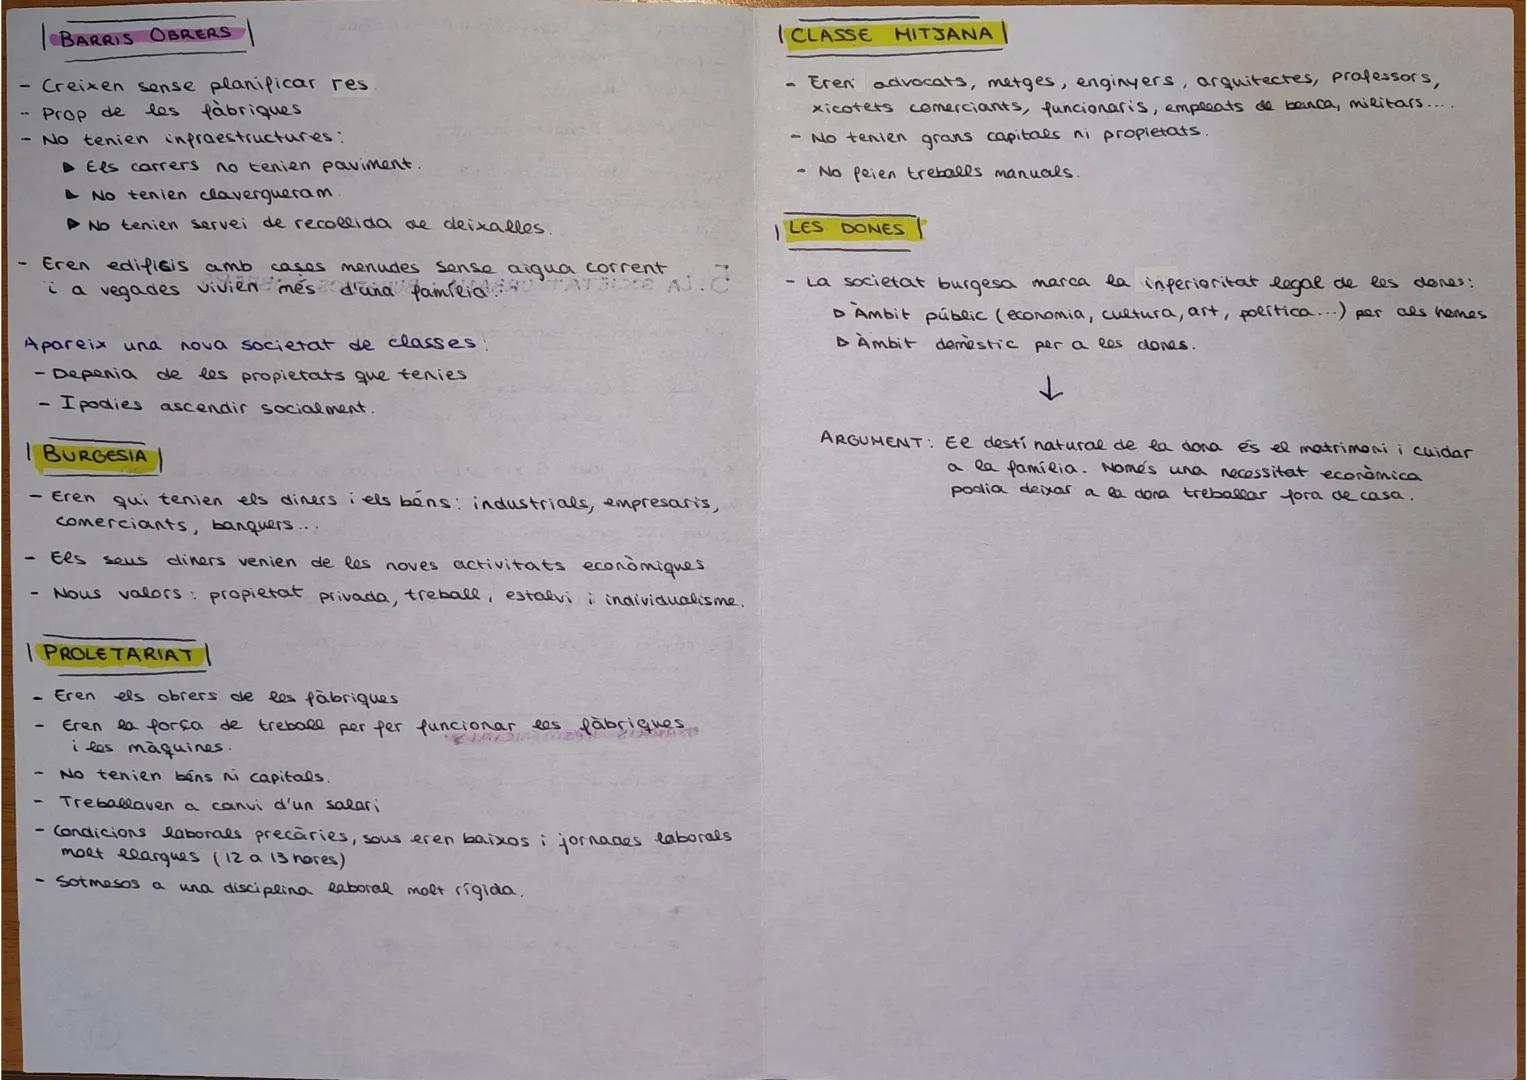 BARRIS OBRERS
- Creixen sense planificar res.
- Prop de les fàbriques
- No tenien infraestructures:
▶ Els carrers no tenien paviment.
▶ No tenien clavergueram.
▶ No tenien servei de recollida de deixalles.
- Eren edificis amb cases menudes sense aigua corrent
i a vegades vivien més d'una família.
Apareix una nova societat de classes:
- Depenia de les propietats que tenies
- I podies ascendir socialment.
BURGESIA
- Eren qui tenien els diners i els béns: industrials, empresaris,
comerciants, banquers...
- Els seus diners venien de les noves activitats econòmiques
- Nous valors: propietat privada, treball, estalvi i individualisme.
PROLETARIAT
- Eren els obrers de les fàbriques
- Eren la força de treball per fer funcionar les fàbriques
i les màquines.
- No tenien béns ni capitals.
- Treballaven a canvi d'un salari
- Condicions laborals precàries, sous eren baixos i jornades laborals
molt llargues (12 a 13 hores)
- Sotmesos a una disciplina laboral molt rígida.
CLASSE MITJANA
- Eren advocats, metges, enginyers, arquitectes, professors,
xicotets comerciants, funcionaris, empleats de banca, militars....
- No tenien grans capitals ni propietats.
- No feien treballs manuals.
LES DONES
- La societat burgesa marca la inferioritat legal de les dones:
▷ Àmbit públic (economia, cultura, art, política...) per als homes
▷ Àmbit domèstic per a les dones.
↓
ARGUMENT: El destí natural de la dona és el matrimoni i cuidar
a la família. Només una necessitat econòmica
podia deixar a la dona treballar fora de casa.